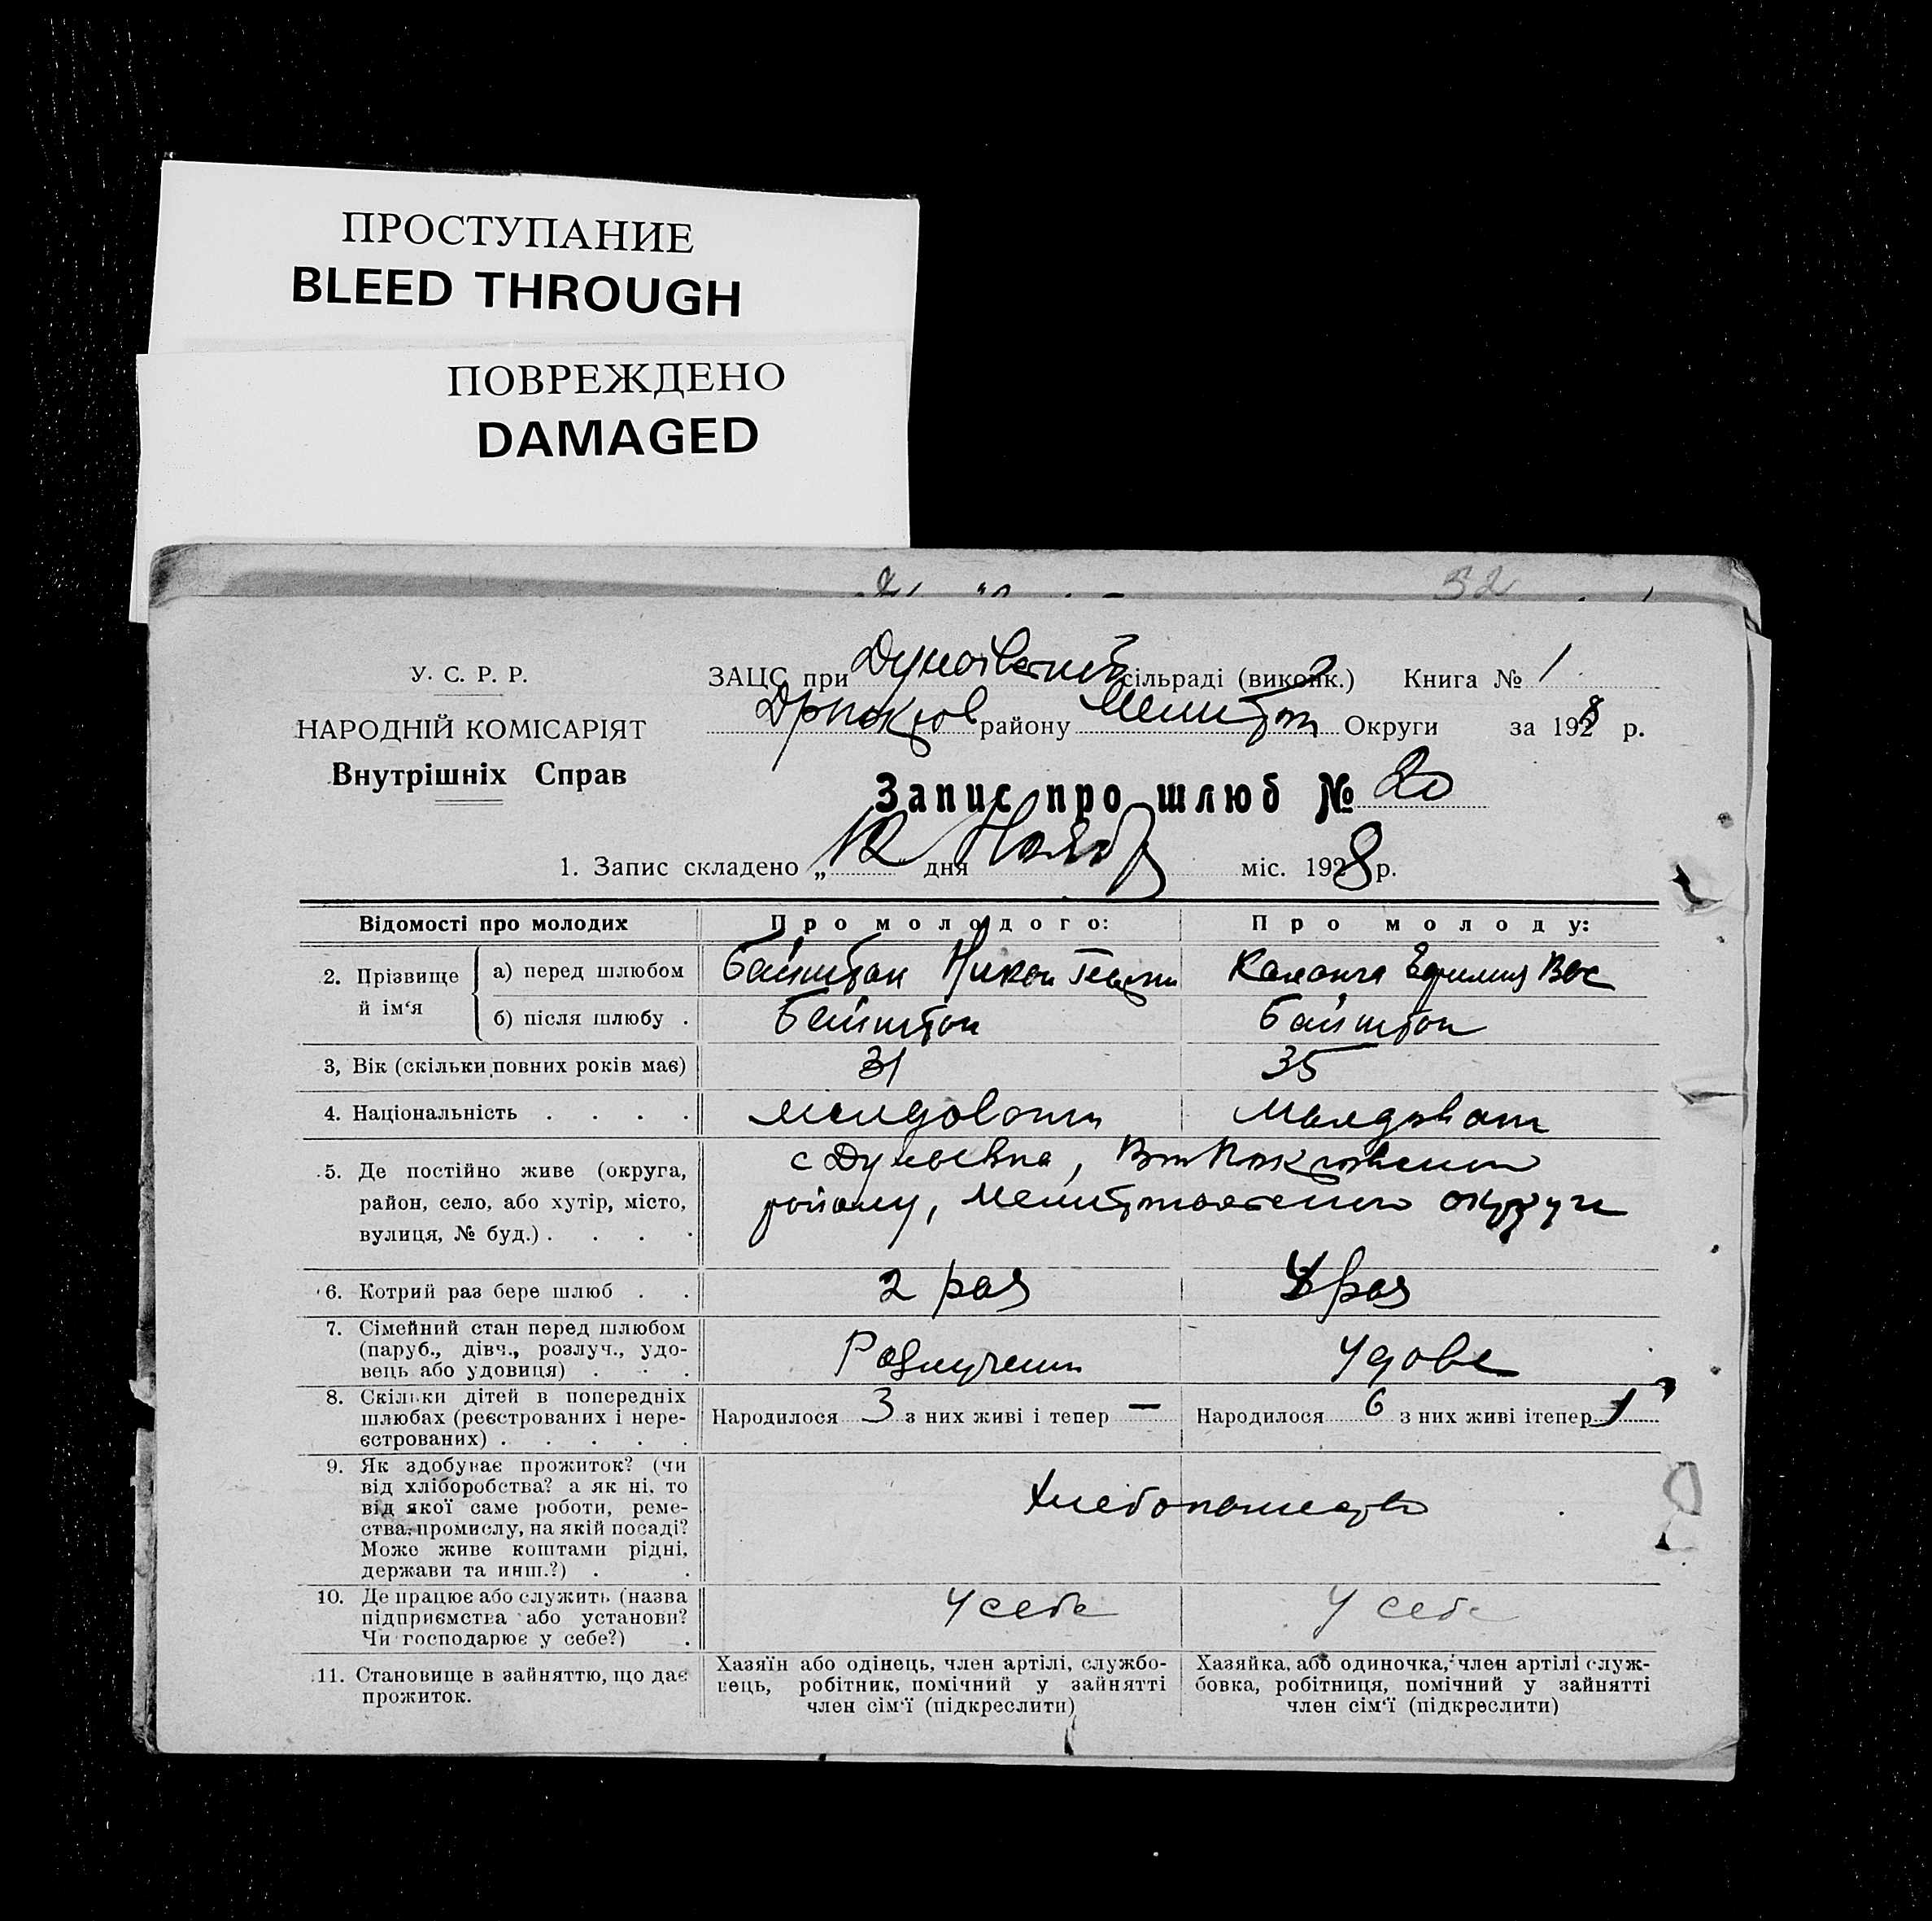 ПРОСТУПАНИЕ
BLEED THROUGH
ПОВРЕЖДЕНО
DAMAGED
32
У. С. Р. Р.
НАРОДНІЙ КОМІСАРІЯТ
Внутрішніх Справ
ЗАЦС при сільраді (виконк.) Книга № 1
району Округи за 1928 р.
Запис про шлюб № 20
1. Запис складено „12 дня Ноябр міс. 1928 р.
Відомості про молодих Про молодого: Про молоду:
2. Прізвище й ім‘я
а) перед шлюбом Байштан Никон
б) після шлюбу . Байштан Байштан
3, Вік (скільки повних років має) 31 35
4. Національність . . . . молдован молдован
5. Де постійно живе (округа,
район, село, або хутір, місто,
вулиця, № буд.) . . . .
району, округи
6. Котрий раз бере шлюб . . 2 раз раз
7. Сімейний стан перед шлюбом
(паруб., дівч., розлуч., удо-
вець або удовиця) . . . Удова
8. Скільки дітей в попередніх
шлюбах (реєстрованих і нере-
єстрованих) . . . . .
Народилося 3 з них живі і тепер — Народилося 6 з них живі ітепер 1
9. Як здобуває прожиток? (чи
від хліборобства? а як ні, то
від якої саме роботи, реме-
ства, промислу, на якій посаді?
Може живе коштами рідні,
держави та инш.?) . .
10. Де працює або служить (назва
підприємства або установи?
Чи господарює у себе?) .
У себе У себе
11. Становище в зайняттю, що дає
прожиток.
Хазяїн або одінець, член артілі, службо-
вець, робітник, помічний у зайнятті
член сім‘ї (підкреслити)
Хазяйка, або одиночка, член артілі служ-
бовка, робітниця, помічний у зайнятті
член сім‘ї (підкреслити)